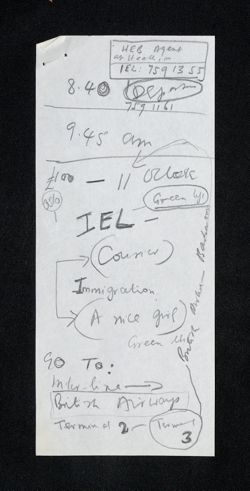 HEB Agent
at Heathrow
TEL: 759 13 55
8.40
759 1161
9.45 am
£100 — 11 O'Clock
Green
IEL —
(Courier)
Immigration
(A nice girl)
Green
GO TO:
Inter-line →
British Airways
Terminal 2 — Terminal
3